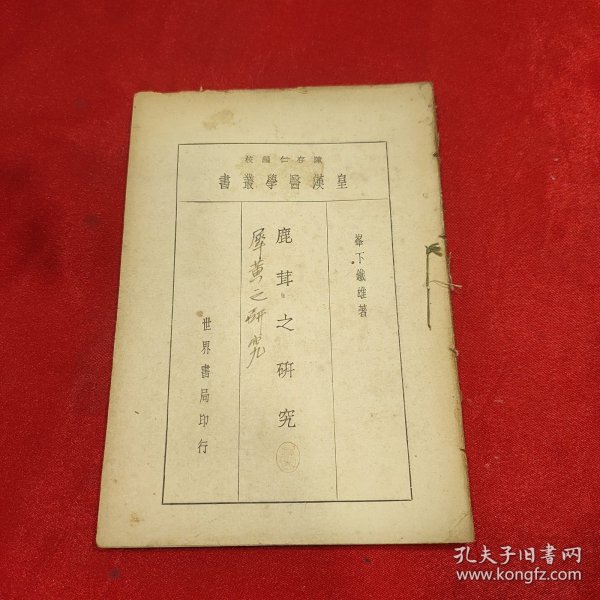 陳存仁編校
皇漢醫學叢書
峯下鐵雄著
鹿茸之研究
犀黃之研究
世界書局印行
孔夫子旧书网
www.kongfz.com